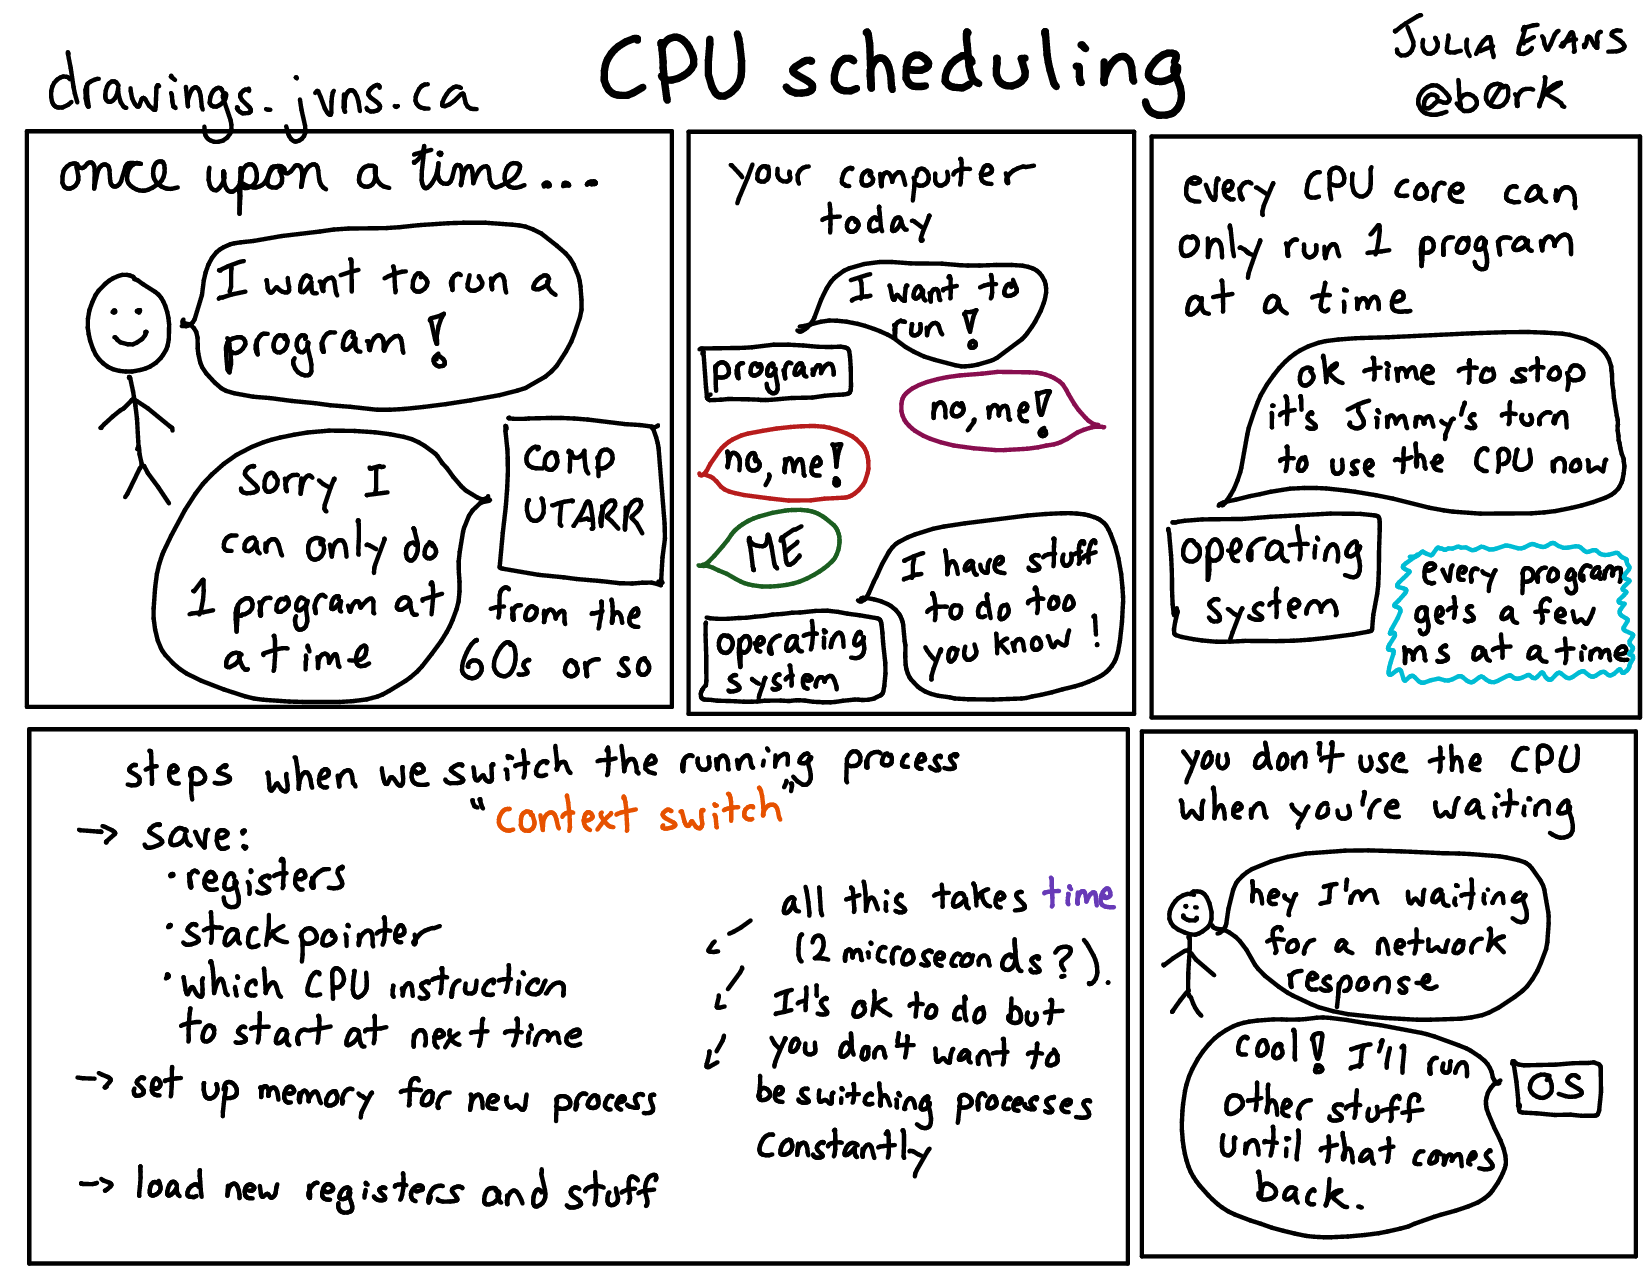 drawings.jvns.ca
CPU scheduling
JULIA EVANS
@b0rk
once upon a time...
I want to run a
program!
Sorry I
can only do
1 program at
a time
COMP
UTARR
from the
60s or so
your computer
today
I want to
run!
program
no, me!
no, me!
ME
I have stuff
to do too
you know!
operating
system
every CPU core can
only run 1 program
at a time
ok time to stop
it's Jimmy's turn
to use the CPU now
operating
system
every program
gets a few
ms at a time
steps when we switch the running process
"context switch"
→ save:
· registers
· stack pointer
· which CPU instruction
to start at next time
→ set up memory for new process
→ load new registers and stuff
all this takes time
(2 microseconds?).
It's ok to do but
you don't want to
be switching processes
constantly
you don't use the CPU
when you're waiting
hey I'm waiting
for a network
response
cool! I'll run
other stuff
until that comes
back.
OS